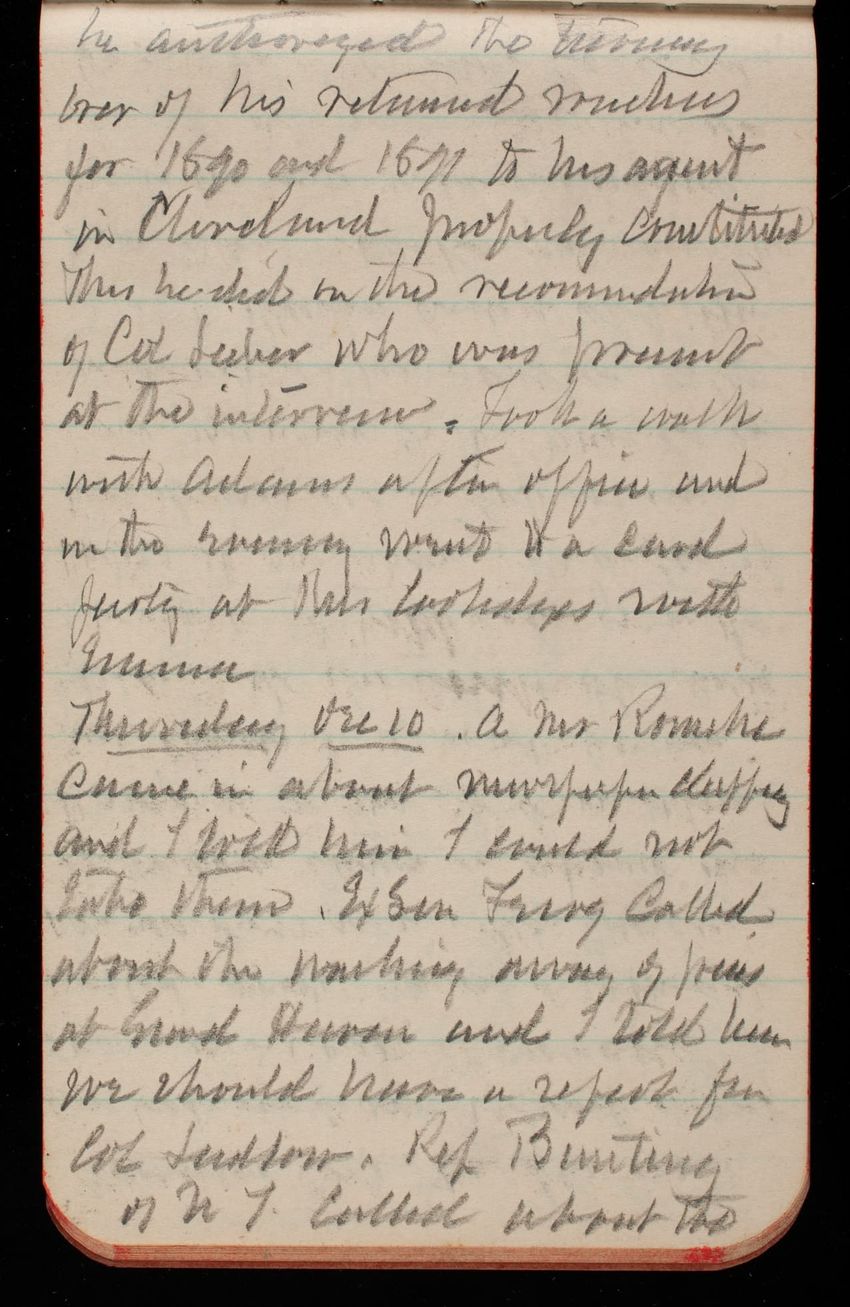 he authorized the turning
over of his retained
for 1890 and 1891 to his agent
in Cleveland properly constituted
This he did on the recommendation
of Col Lieber who was present
at the interview. Took a walk
with Adams after office and
in the evening went to a card
party at Mrs with
Emma
Thursday Dec 10. A Mr Romeike
came in about newspaper clipping
and I told him I could not
take them. Ex Sen Ferry called
about the washing away of piers
at Grand Haven and I told him
we should have a report from
Col Ludlow. Rep Bunting
of N Y. called about the